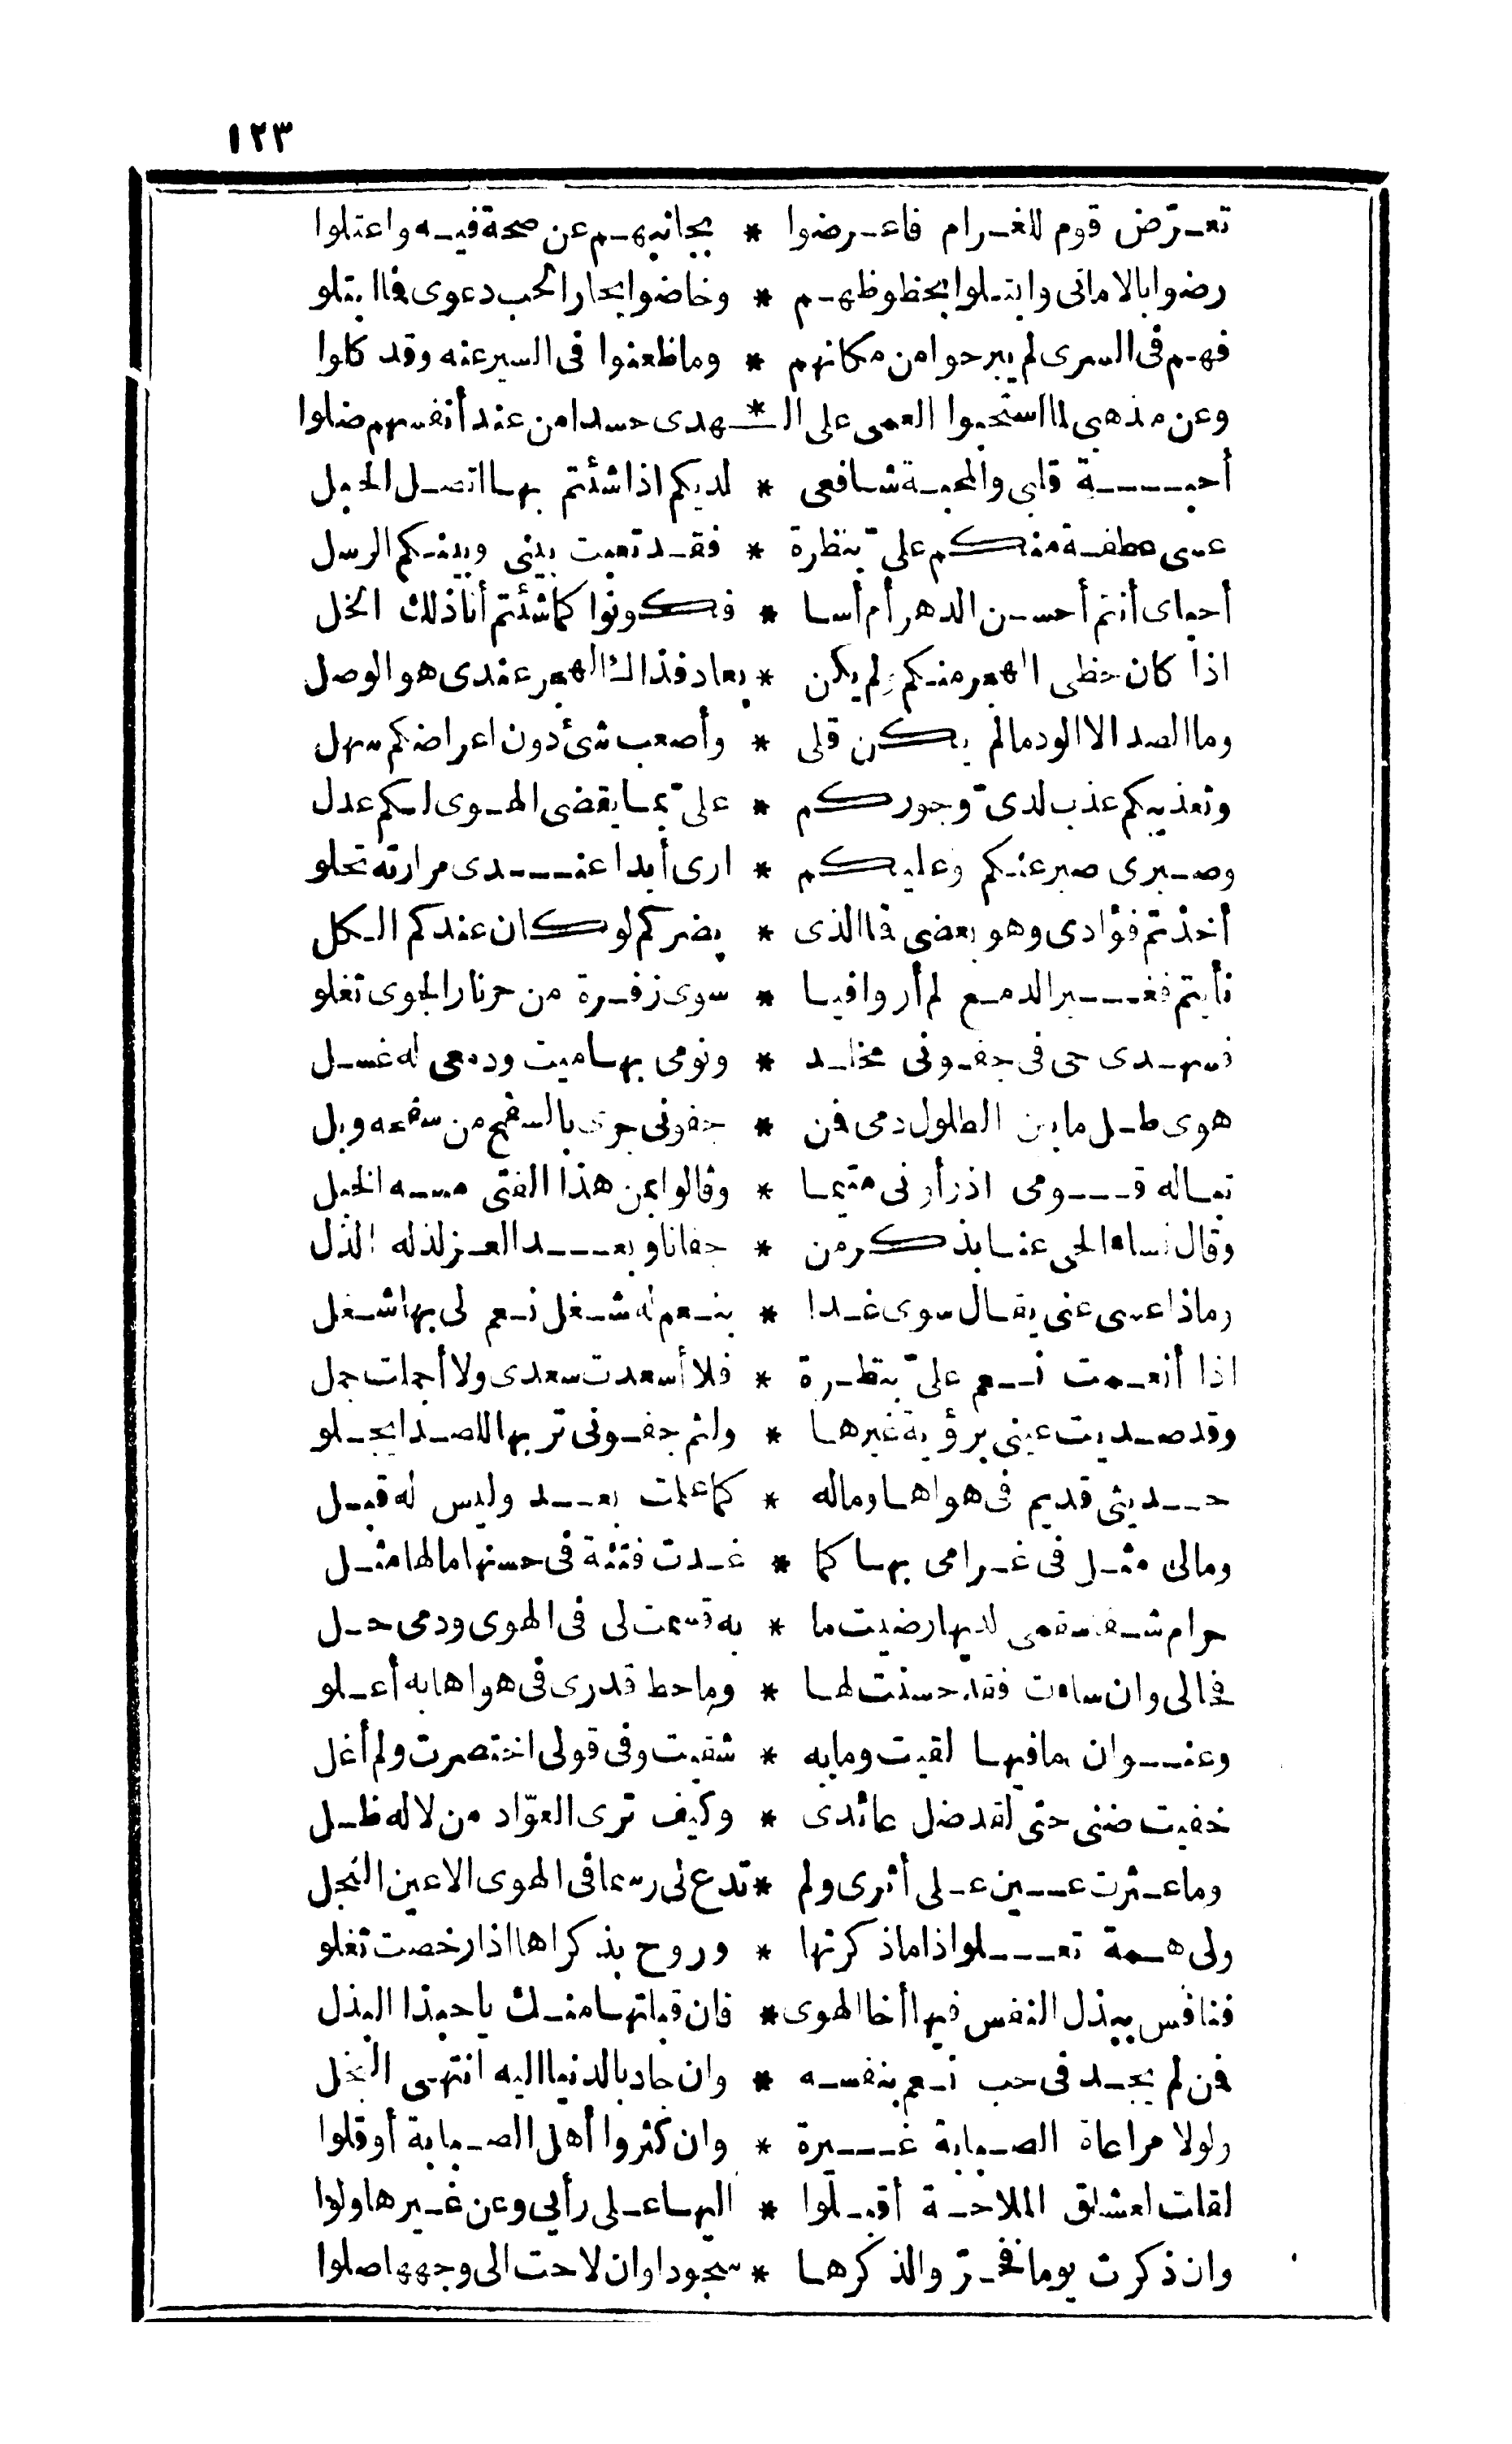 ١٢٣
تعرّض قوم للغرام فاعرضوا * بجانبهم عن صحة فيه واعتلوا
رضوا بالامانى وابتلوا بحظوظهم * وخاضوا بحار الحب دعوى فما ابتلو
فهم فى السرى لم يبرحوا من مكانهم * وما ظعنوا فى السير عنه وقد كلوا
وعن مذهبى لما استحبوا العمى على ال * هدى حسدا من عند أنفسهم ضلوا
أحبة قلبى والمحبة شافعى * لديكم اذا شئتم بها اتصل الحبل
عسى عطفة منكم على بنظرة * فقد تعبت بينى وبينكم الرسل
أحباى أنتم أحسن الدهر أم أسا * فكونوا كما شئتم أنا ذلك الخل
اذا كان حظى الهجر منكم ولم يكن * بعاد فذاك الهجر عندى هو الوصل
وما الصد الا الود ما لم يكن قلى * وأصعب شئ دون اعراضكم سهل
وتعذيبكم عذب لدىّ وجوركم * علىّ بما يقضى الهوى لكم عدل
وصبرى صبر عنكم وعليكم * ارى أبدا عندى مرارته تحلو
أخذتم فؤادى وهو بعضى فما الذى * يضركم لو كان عندكم الكل
نأيتم فغير الدمع لم أر وافيا * سوى زفرة من حر نار الجوى تغلو
فسهدى حى فى جفونى مخلد * ونومى بها ميت ودمعى له غسل
هوى طل ما بين الطلول دمى فمن * جفونى جرى بالسفح من سفحه وبل
تباله قومى اذ رأونى متيما * وقالوا بمن هذا الفتى مسه الخبل
وقال نساء الحى عنا بذكر من * جفانا وبعد العز لذ له الذل
وماذا عسى عنى يقال سوى غدا * بنعم له شغل نعم لى بها شغل
اذا أنعمت نعم علىّ بنظرة * فلا أسعدت سعدى ولا أجملت جمل
وقد صديت عينى برؤية غيرها * ولثم جفونى تربها للصدا يجلو
حديثى قديم فى هواها وماله * كما علمت بعد وليس له قبل
ومالى مثل فى غرامى بها كما * غدت فتنة فى حسنها مالها مثل
حرام شفا سقمى لديها رضيت ما * به قسمت لى فى الهوى ودمى حل
فحالى وان ساءت فقد حسنت لها * وما حط قدرى فى هواها به أعلو
وعنوان ما فيها لقيت وما به * شقيت وفى قولى اختصرت ولم أغل
خفيت ضنى حتى لقد ضل عائدى * وكيف ترى العوّاد من لا له ظل
وما عثرت عين على أثرى ولم * تدع لى رسما فى الهوى الاعين النجل
ولى همة تعلو اذا ما ذكرتها * وروح بذكراها اذا رخصت تغلو
فنافس ببذل النفس فيها أخا الهوى * فان قبلتها منك يا حبذا البذل
فمن لم يجد فى حب نعم بنفسه * وان جاد بالدنيا اليه انتهى البخل
ولولا مراعاة الصبابة غيرة * وان كثروا أهل الصبابة أو قلوا
لقلت لعشاق الملاحة أقبلوا * اليها على رأيى وعن غيرها ولوا
وان ذكرت يوما فخرّوا لذكرها * سجودا وان لاحت الى وجهها صلوا